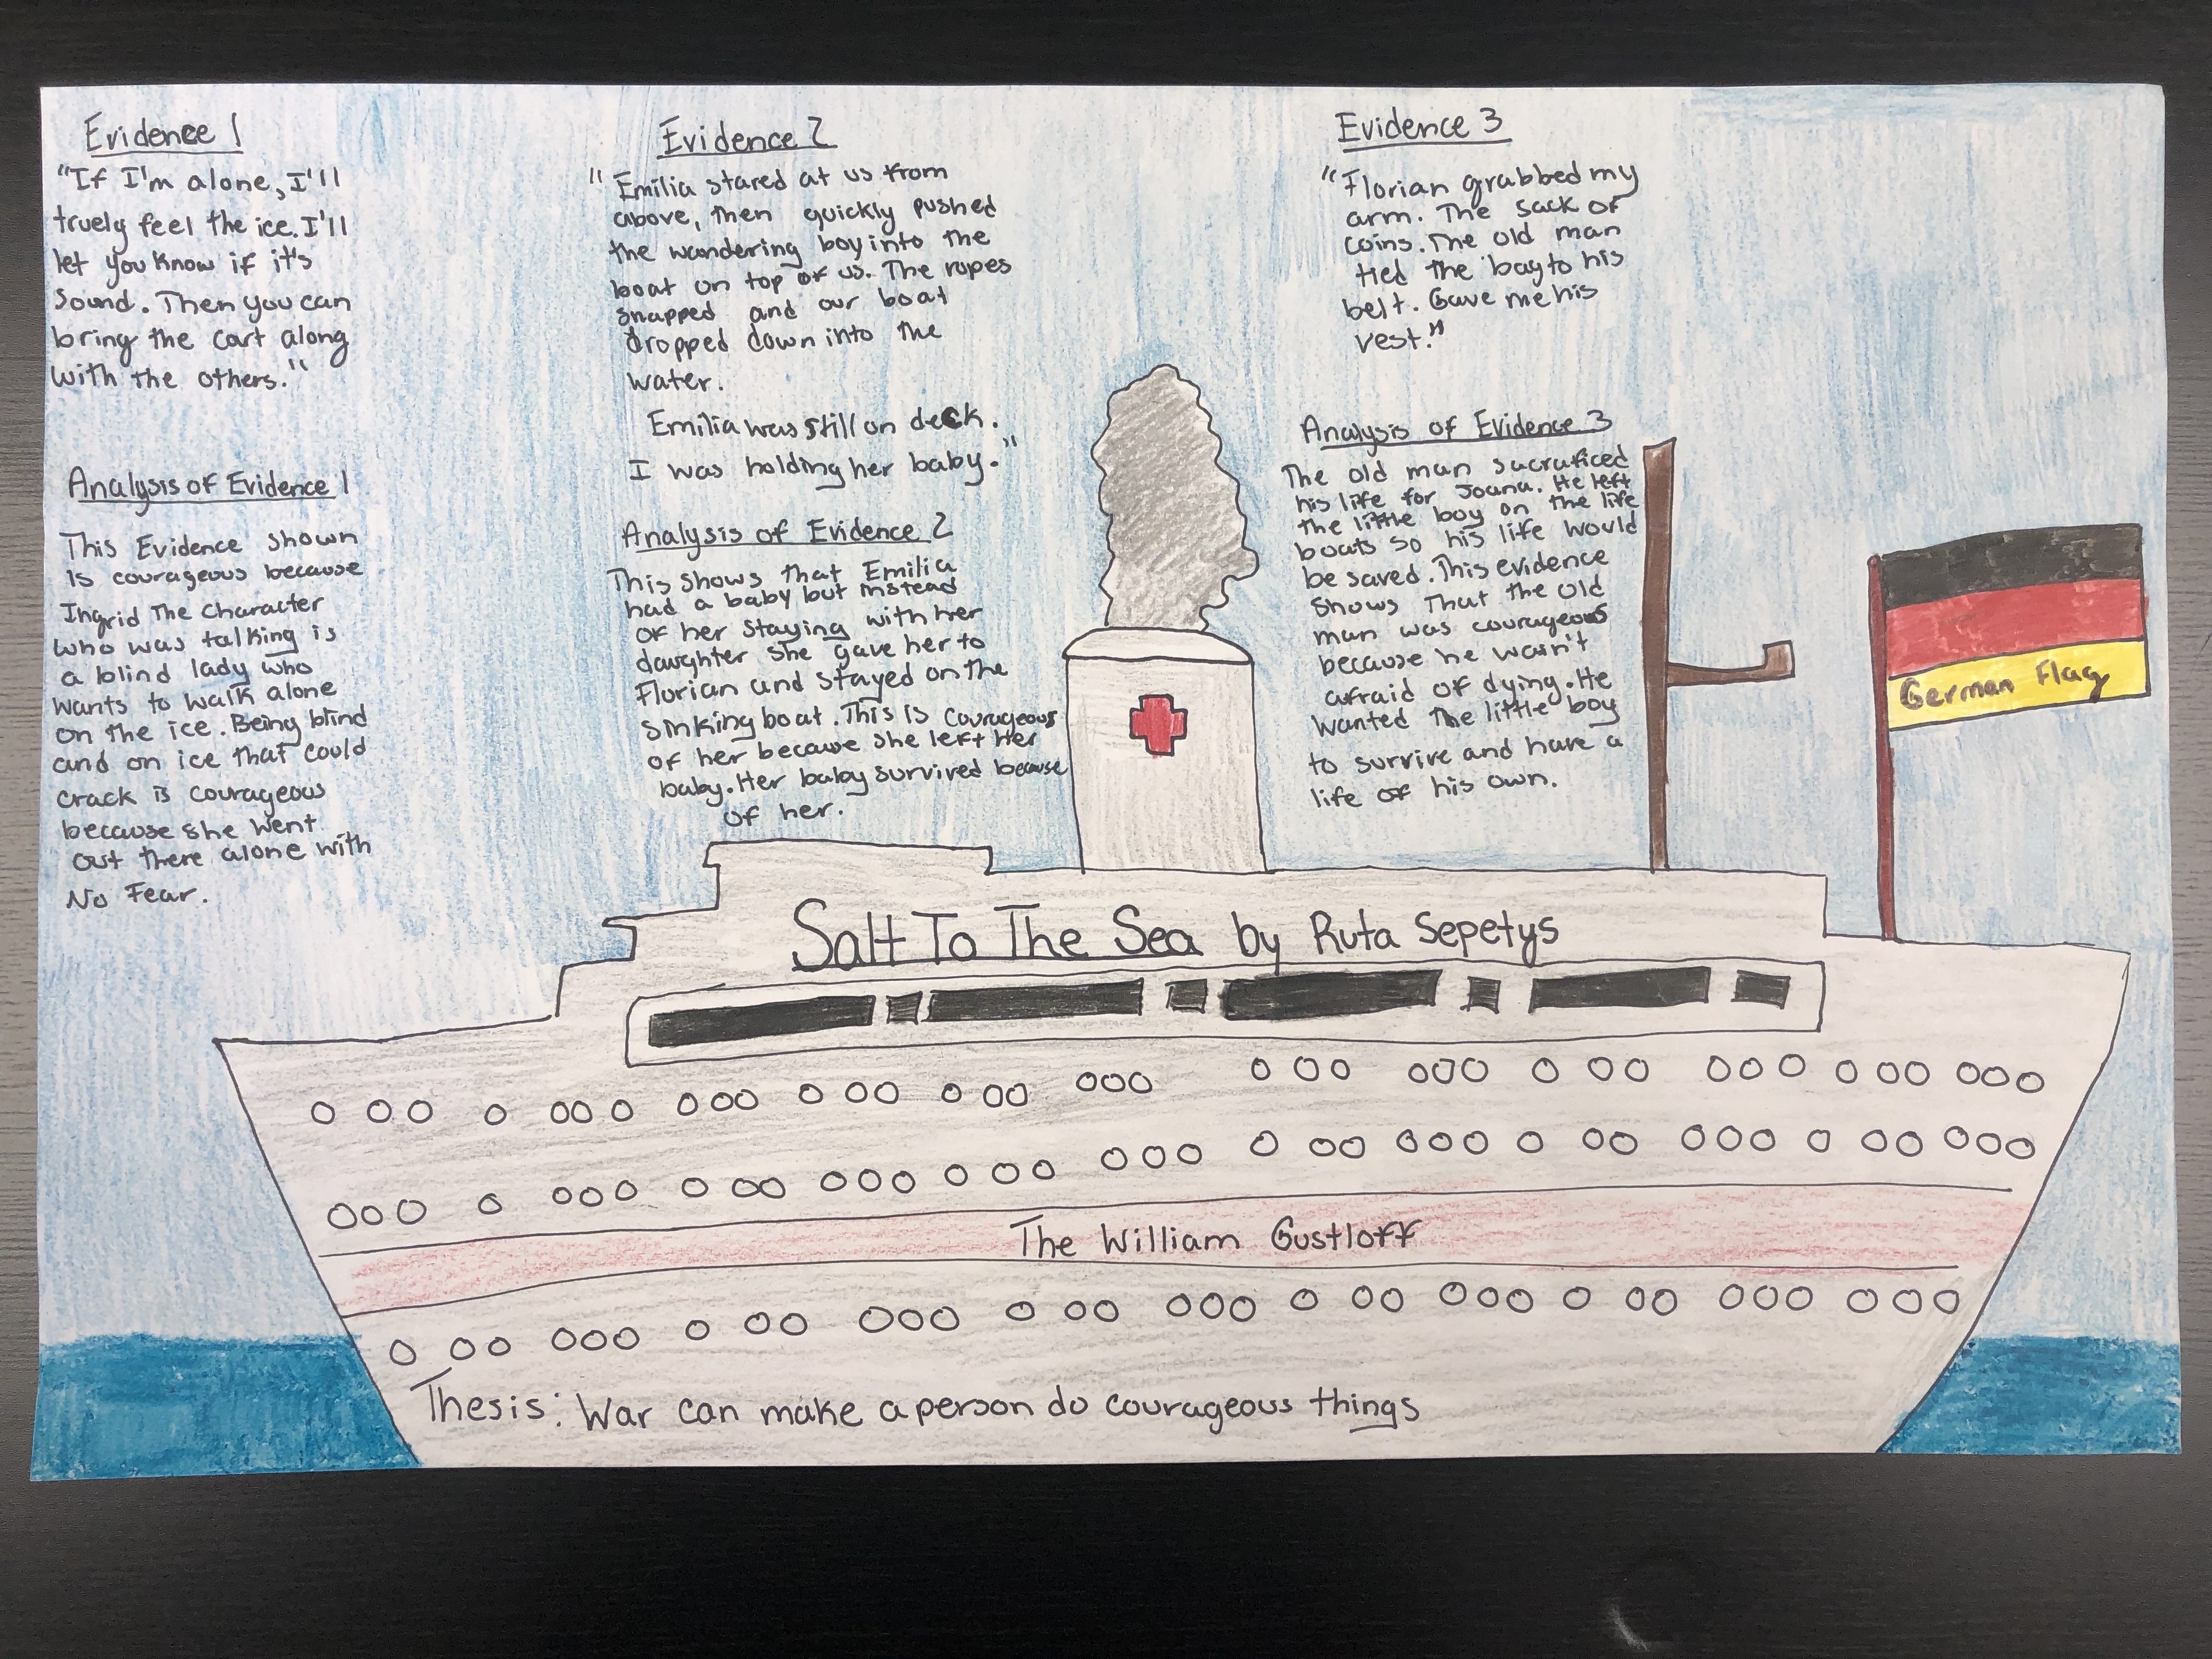 Evidence 1
"If I'm alone, I'll
truely feel the ice. I'll
let you know if it's
sound. Then you can
bring the cart along
with the others."
Analysis of Evidence 1
This Evidence shown
Is courageous because
Ingrid The Character
who was talking is
a blind lady who
wants to walk alone
on the ice. Being blind
and on ice that could
crack is courageous
because she went
out there alone with
No Fear.
Evidence 2
"Emilia stared at us from
above, then quickly pushed
the wandering boy into the
boat on top of us. The ropes
snapped and our boat
dropped down into the
water.
Emilia was still on deck.
I was holding her baby."
Analysis of Evidence 2
This shows that Emilia
had a baby but instead
of her staying with her
daughter she gave her to
Florian and stayed on the
sinking boat. This is courageous
of her because she left Her
baby. Her baby survived because
of her.
Evidence 3
"Florian grabbed my
arm. The sack of
coins. The old man
tied the bag to his
belt. Gave me his
vest."
Analysis of Evidence 3
The old man sacraficed
his life for Joana. He left
the little boy on the life
boats so his life would
be saved. This evidence
shows That the old
man was courageous
because he wasn't
afraid of dying. He
wanted the little boy
to survive and have a
life of his own.
German Flag
Salt To The Sea by Ruta Sepetys
The William Gustloff
Thesis: War can make a person do courageous things